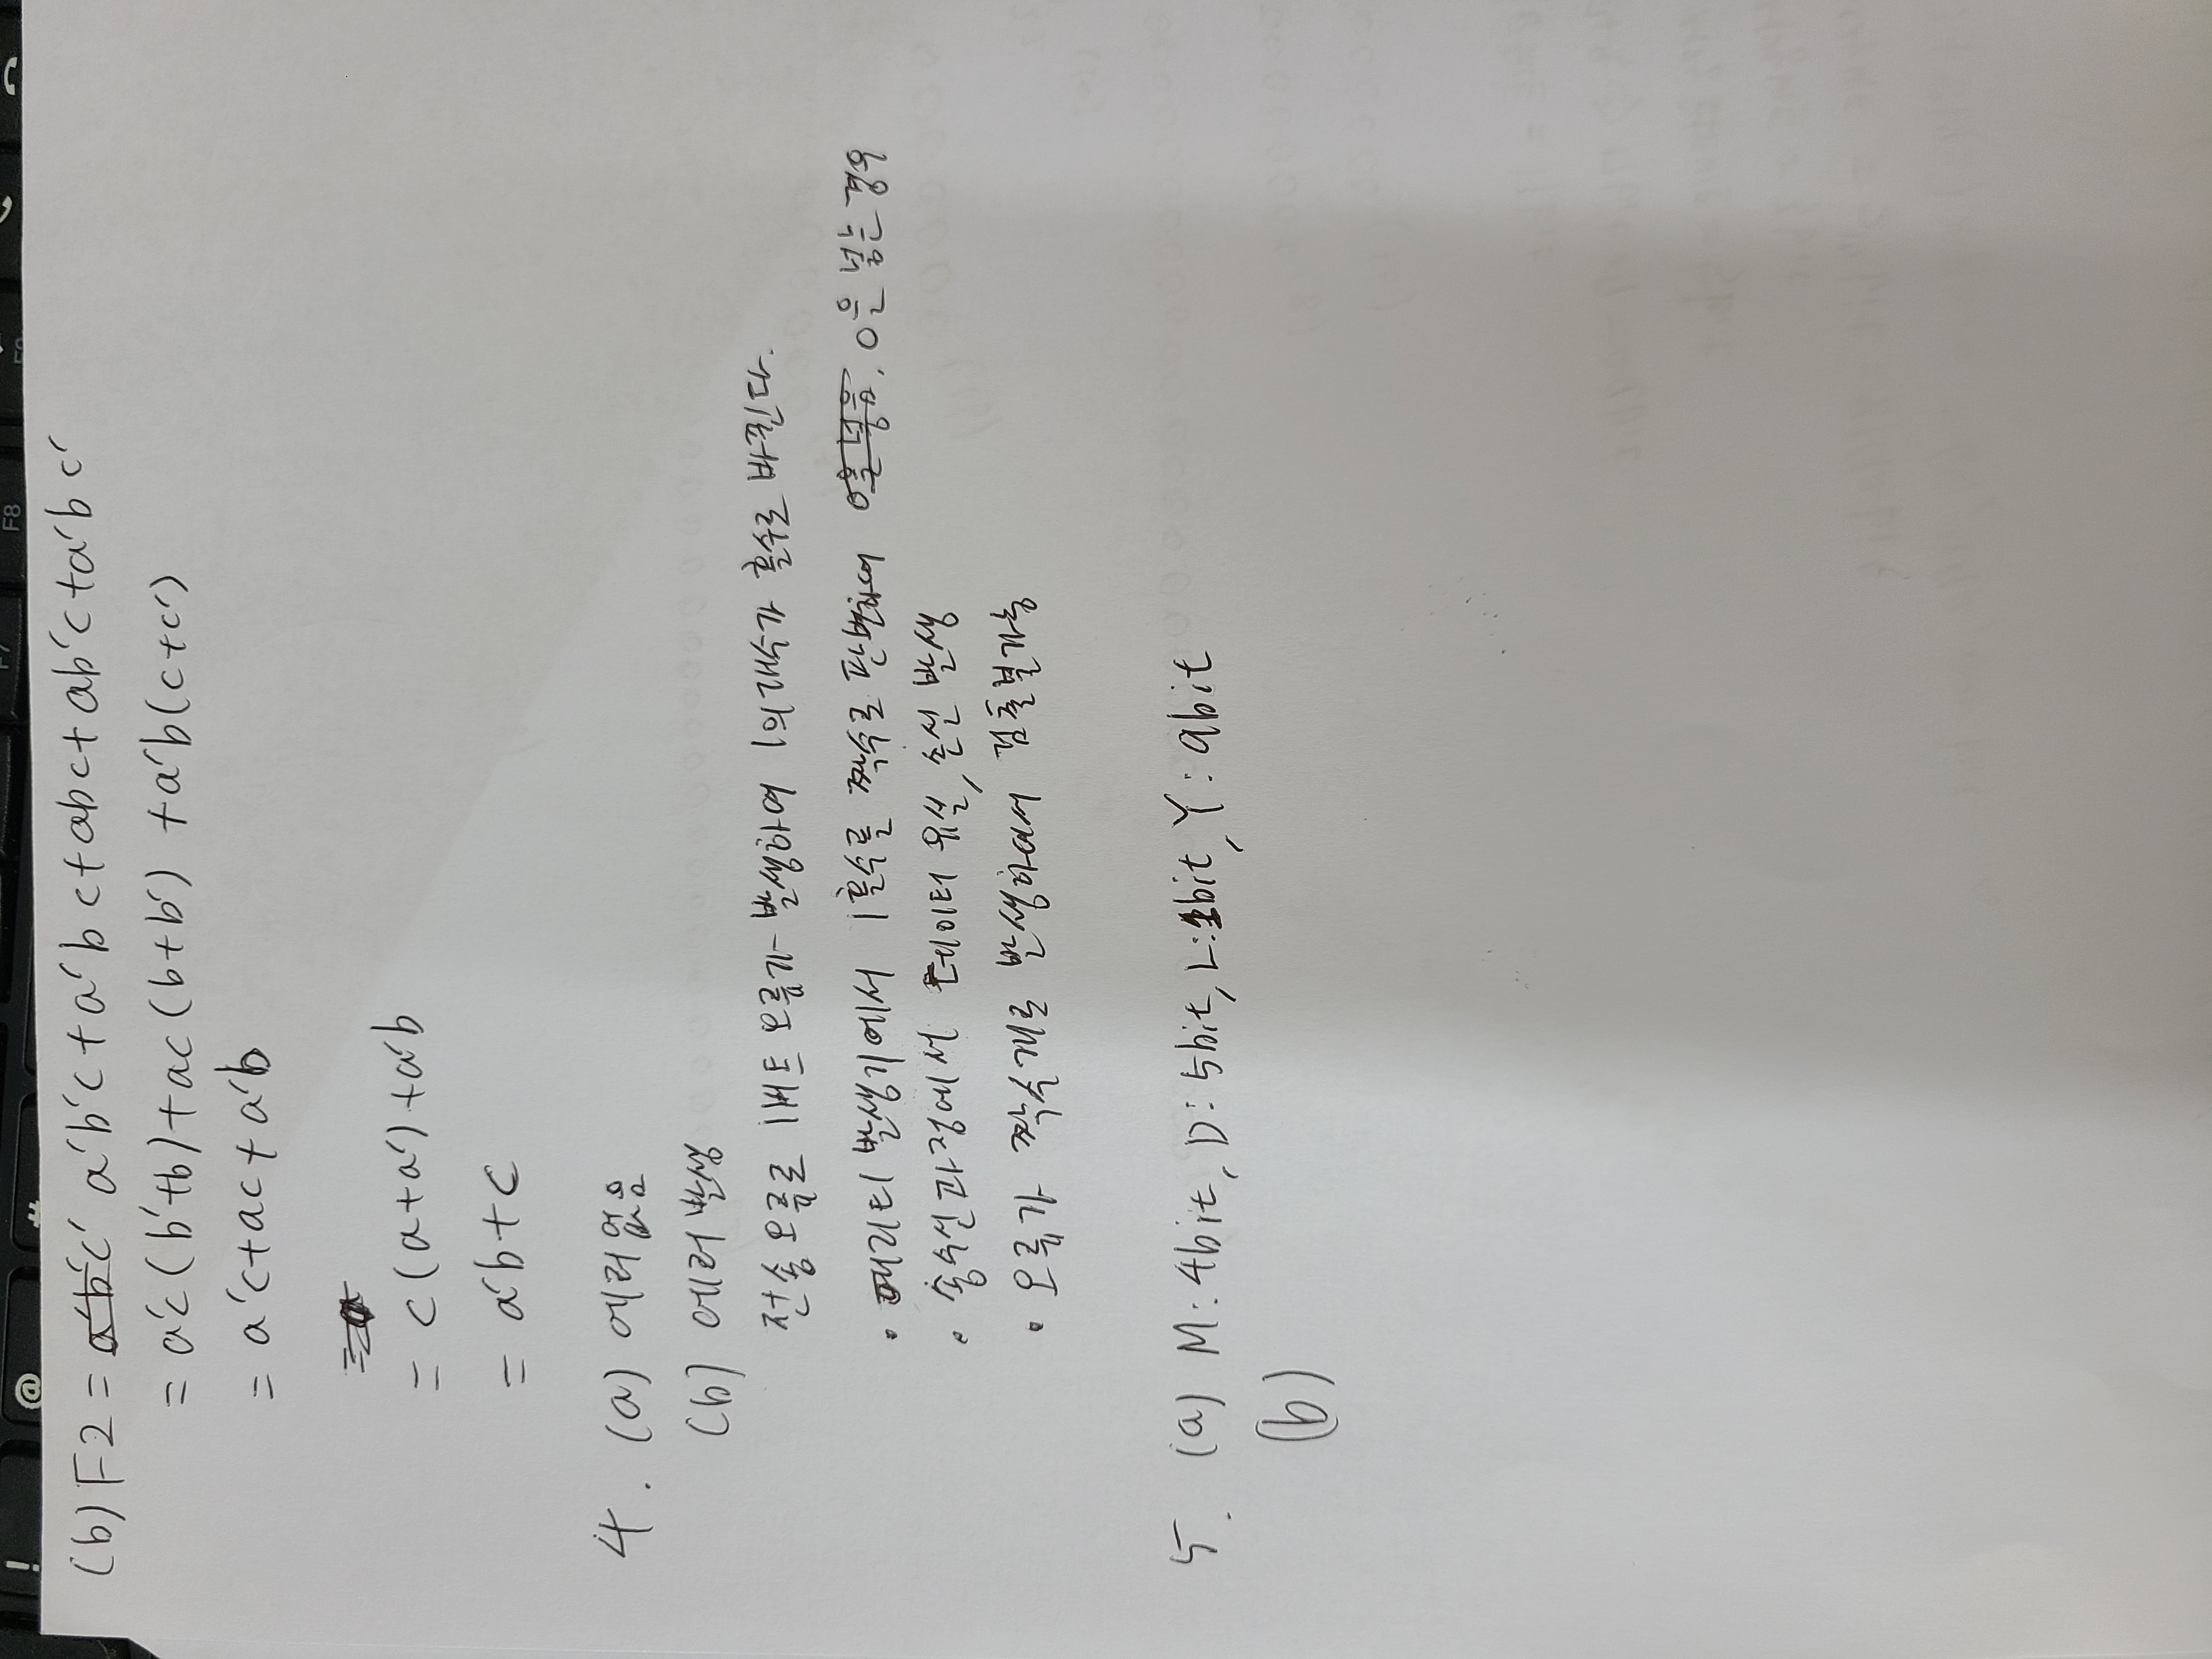 ! @ # F7 F8 F9
(b) F2 = a'b'c' a'b'c + a'bc + abc + ab'c + a'bc'
= a'c(b'+b) + ac(b+b') + a'b(c+c')
= a'c + ac + a'b
= a
= c(a+a') + a'b
= a'b + c
4. (a) 에러없음
(b) 에러 발생
전송오류로 1비트 오류가 발생하여 1의 개수가 홀수로 바뀐다.
• 패리티 발생기에서 1홀수를 짝수로 판변하여 0을 넣음, 0을 넣는 경우
• 송수신과정에서 데이터 유실, 손실 발생
• 오류가 짝수개로 발생하여서 검출불가능
5. (a) M: 4bit, D: 5bit, L: 1bit, Y: 9bit
(b)